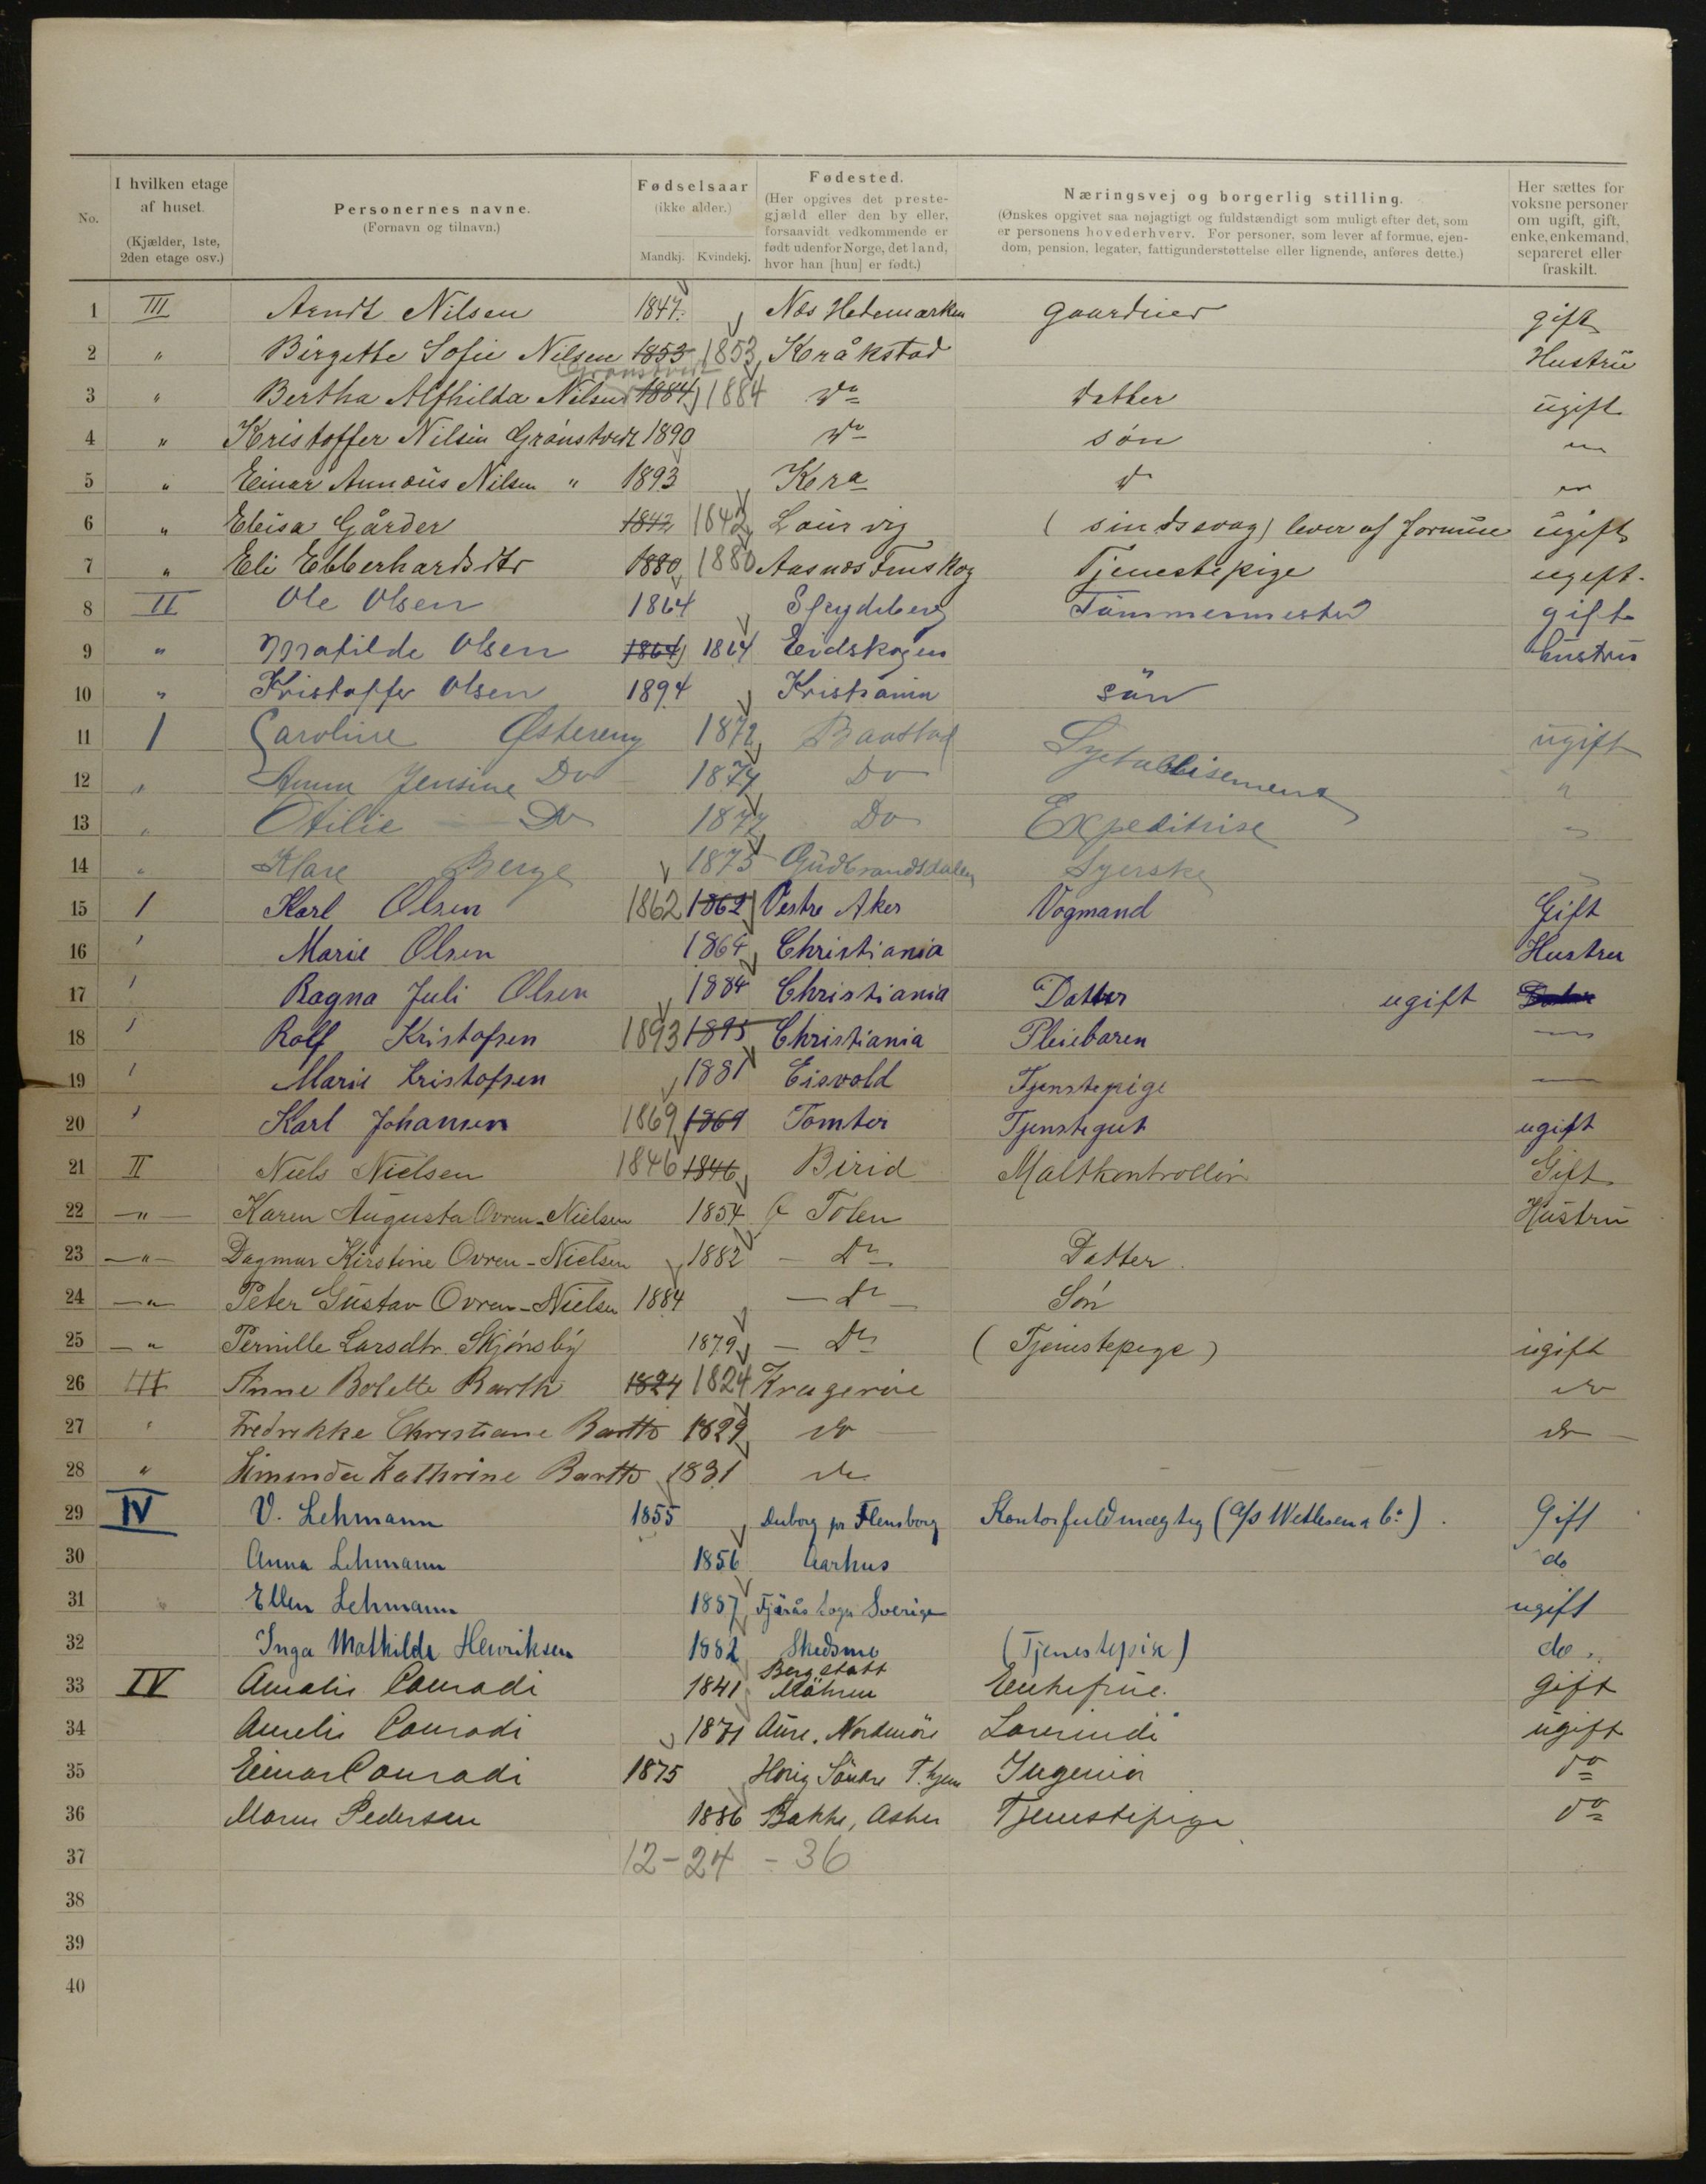 No.
I hvilken etage af huset.
(Kjælder, 1ste, 2den etage osv.)
Personernes navne.
(Fornavn og tilnavn.)
Fødselsaar
(ikke alder.)
Mandkj. Kvindekj.
Fødested.
(Her opgives det prestegjæld eller den by eller, forsaavidt vedkommende er født udenfor Norge, det land, hvor han [hun] er født.)
Næringsvej og borgerlig stilling.
(Ønskes opgivet saa nøjagtigt og fuldstændigt som muligt efter det, som er personens hovederhverv. For personer, som lever af formue, ejendom, pension, legater, fattigunderstøttelse eller lignende, anføres dette.)
Her sættes for voksne personer om ugift, gift, enke, enkemand, separeret eller fraskilt.
1 III Arndt Nilsen 1847 Næs Hedemarken gaardeier gift
2 " Birgette Sofie Nilsen 1853 1853 Kråkstad Hustru
Grønstvedt
3 " Bertha Alfhilda Nilsen 1884 1884 do datter ugift
4 " Kristoffer Nilsen Grønstvedt 1890 do søn "
5 " Einar Annæus Nilsen " 1893 Kra d "
6 " Elisa Gårder 1842 1842 Laurvig (sindssvag) lever af formue ugift
7 " Eli Ebberhardsdtr 1880 1880 Aasnæs Finskog Tjenestepige ugift.
8 II Ole Olsen 1864 Spydeberg Tømmermester gift
9 " Matilde Olsen 1864 1864 Eidskogen hustru
10 " Kristoffer Olsen 1894 Kristiania søn
11 1 Caroline Østereng 1872 Baastad Syetablisement ugift
12 " Anna Jensine Do 1874 Do "
13 " Otilie Do 1877 Do Expeditrise "
14 " Klare Berge 1875 Gudbrandsdalen Syerske "
15 1 Karl Olsen 1862 1862 Vestre Aker Vogmand Gift
16 ' Marie Olsen 1864 Christiania Hustru
17 ' Ragna Juli Olsen 1884 Christiania Datter ugift
18 ' Rolf Kristofsen 1893 1895 Christiania Pleiebaren "
19 ' Marie Kristofsen 1881 Eisvold Tjenstepige
20 ' Karl Johansen 1869 1869 Tomter Tjenstegut ugift
21 II Niels Nielsen 1846 1846 Birid Maltkontrollør Gift
22 " Karen Augusta Ovren-Nielsen 1854 Ø Toten Hustru
23 " Dagmar Kirstine Ovren-Nielsen 1882 Do Datter
24 " Peter Gustav Ovren-Nielsen 1884 Do Søn
25 " Pernille Larsdtr. Skjønsby 1879 Do (Tjenestepige) ugift
26 III Anne Bolette Barth 1824 1824 Kragerøe do
27 " Fredrikke Christiane Barth 1829 do do
28 " Kathrine Barth 1831 do
29 IV V. Lehmann 1855 Duborg pr Flensborg Kontorfuldmægtig (A/S Wetlesen & Co) Gift
30 Anna Lehmann 1856 Aarhus do
31 Ellen Lehmann 1887 Fjärås sogn Sverige ugift
32 Inga Mathilde Henriksen 1882 Skedsmo (Tjenestepike) do "
33 IV Amalie Conradi 1841 Bergstatt Mähren Enkefrue. gift
34 Amelie Conradi 1871 Aure, Nordmøre Lærerinde ugift
35 Einar Conradi 1875 Søndre T.hjem Ingeniør do
36 Maren Pedersen 1886 Bakke, Asker Tjenestepige do
37 12-24-36
38
39
40